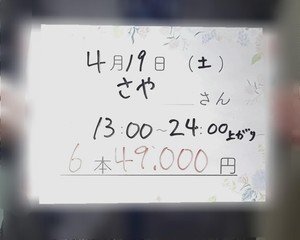 4月19日（土）
さや さん
13:00～24:00上がり
6本49.000円